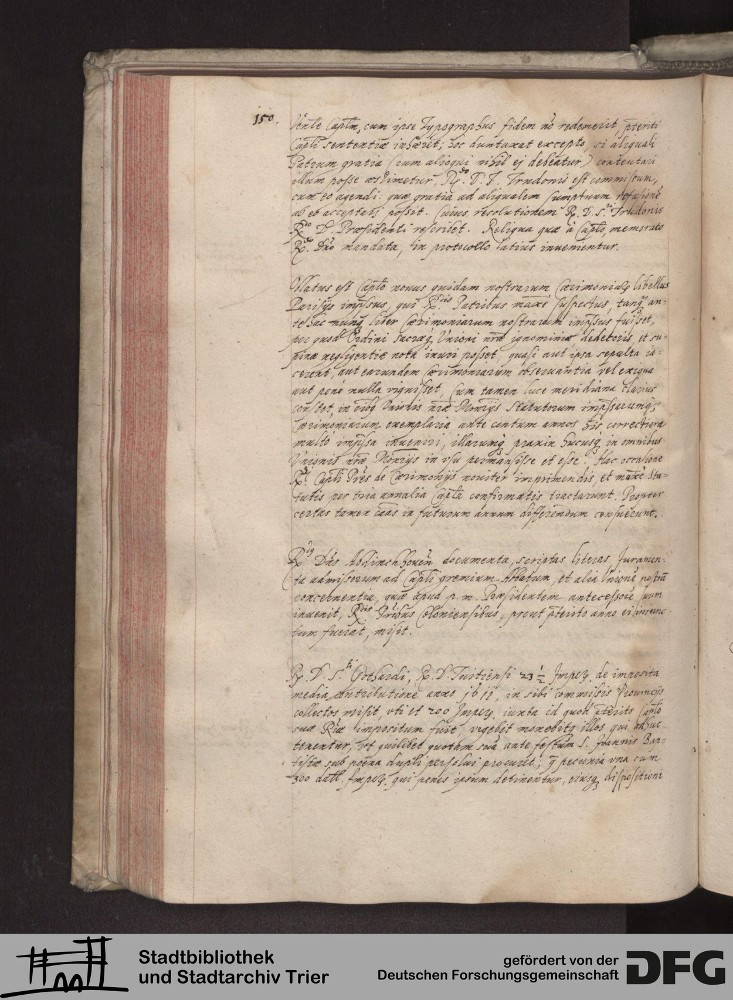 150.
Venle Captm, cum ipse Typographus fidem nō redemerit, pteriti
Capli sententiæ inhæsit; hoc duntaxat excepto, si aliquali
Patrum gratia (cum alioqui nihil ei debeatur) contentari
illum posse æstimetur, Rdo. D. S. Trudonis est commissum,
cum eo agendi. quæ gratia ad aliqualem sumptuum
ab eo acceptari possit. Cuius resolutionem R. D. S. Trudonis
Rmo D. Præsidenti rescribet. Reliqua quæ à Capto, memorato
Rdo Dño mandata, in protocollo latius invenientur.
Allatus est Capto novus quidam nostrarum Cærimonialis libellus
Parisijs impssus, qui Rdis Patribus maxe suspectus, tanq an-
tehac nunq liber Cærimoniarum nostrarum impssus fuisset,
per quod Ordini sacroq Unioni nræ ignominiæ dedecoris, et su-
pinæ negligentiæ nota inuri posset, quasi aut ipsa sepulta ia-
cerent, aut earundem cærimoniarum observantia vel exigua
aut penè nulla viguisset. Cum tamen luce meridiana clarius
constet, in Unionis nræ Monrijs Statutorum impssarumq
cærimoniarum exemplaria ante centum annos his correctiora
multò impssa inveniri, illarumq praxin hucusq in omnibus
Unionis nræ Monrijs in usu permansisse et esse. Hac occasione
Rdi Capli Pres de Cærimonijs noviter imprimendis, et maxe Sta-
tutis per tria annalia Capla confirmatis tractarunt. Propter
certas tamen cãas in futurum annum differendum censuerunt.
Rdus Dñs documenta, scriptas literas, Juramen-
ta admissorum ad Capli gremium Abbatum, et alia Unionē nostrã
concernentia, quæ apud p. m. Præsidentem antecessorē suum
invenit, Rdis Patribus Coloniensibus, prout pterito anno ei iniunc-
tum fuerat, misit.
Rs. D. S. Gothardi, Rs. D. Tuitiensi 23 1/2 Imper. de imposita
media contributione anno 1610, in sibi commissis Provincijs
collectos misit, uti et 200 Imper. iuxta id quod pterito Capto
suæ Rdæ impositum fuit, urgebit monebitq illos qui adhuc
tenentur, ut quilibet quotam suã, ante festum S. Joannis Bap-
tistæ sub poena dupli persolui procuret; q pecunia una cum
300 dall. Imper. qui penes ipsum detinentur, eiusq dispositioni
Stadtbibliothek
und Stadtarchiv Trier
gefördert von der
Deutschen Forschungsgemeinschaft
DFG